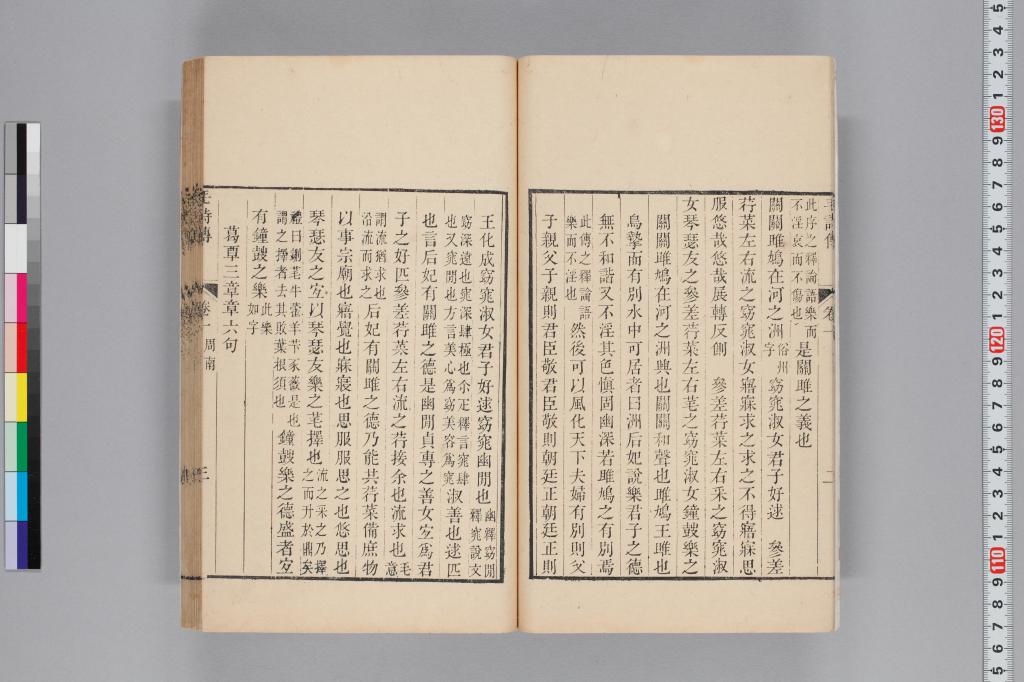 此序之釋論語樂而
不淫哀而不傷也
是關雎之義也
關關雎鳩在河之洲
俗州
字
窈窕淑女君子好逑　參差
荇菜左右流之窈窕淑女寤寐求之求之不得寤寐思
服悠哉悠哉展轉反側　參差荇菜左右采之窈窕淑
女琴瑟友之參差荇菜左右芼之窈窕淑女鐘鼓樂之
關關雎鳩在河之洲興也關關和聲也雎鳩王雎也
鳥摯而有別水中可居者曰洲后妃說樂君子之德
無不和諧又不淫其色愼固幽深若雎鳩之有別焉
此傳之釋論語
樂而不淫也
然後可以風化天下夫婦有別則父
子親父子親則君臣敬君臣敬則朝廷正朝廷正則
王化成窈窕淑女君子好逑窈窕幽閒也
幽釋窈閒
釋窕說文
窈深遠也窕深肆極也尒疋釋言窕肆
也又窕閒也方言美心爲窈美容爲窕
淑善也逑匹
也言后妃有關雎之德是幽閒貞專之善女宐爲君
子之好匹參差荇菜左右流之荇接余也流求也
毛
意
謂流猶求也
沿流而求之
后妃有關雎之德乃能共荇菜備庶物
以事宗廟也寤覺也寐寢也思服服思之也悠思也
琴瑟友之宐以琴瑟友樂之芼擇也
流之采之乃擇
之而升於鼎矣
禮曰鉶芼牛藿羊苄豕薇是也
謂之擇者去其敗葉根須也
鐘鼓樂之德盛者宐
有鐘鼓之樂
此樂
如字
葛覃三章章六句
毛詩傳
卷一
周南
三